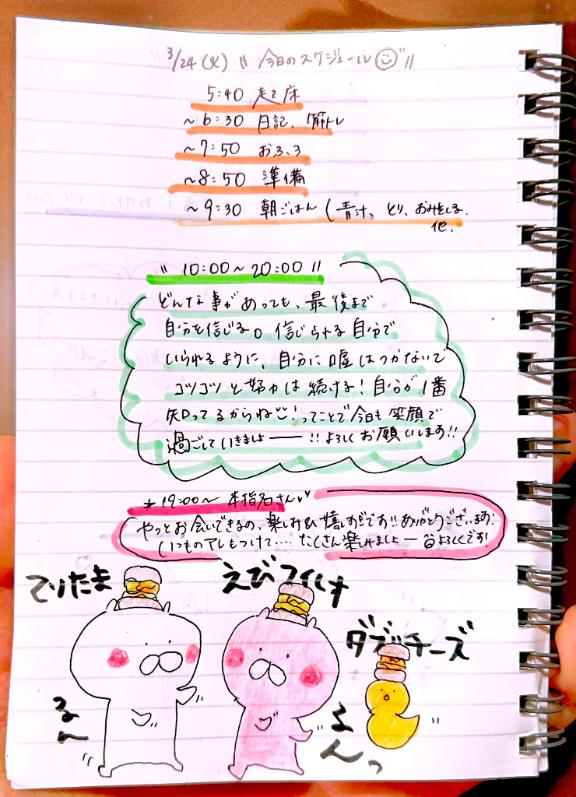 3/24(火) " 今日のスケジュール "
5:40 起床
~6:30 日記、筋トレ
~7:50 おふろ
~8:50 準備
~9:30 朝ごはん (青汁、とり、おみそしる、
他.
" 10:00~20:00 "
どんな事があっても、最後まで
自分を信じる。信じられる自分で
いられるように、自分に嘘はつかないで
コツコツと努力は続ける!自分が1番
知ってるからね!ってことで今日も笑顔で
過ごしていきましょ――!!よろしくお願いします!!
★ 19:00~ 本指名さん♡
やっとお会いできるの、楽しみで嬉しすぎです!!ありがとうございます!
いつものアレもつけて.... たくさん楽しみましょー よろしくです!
てりたま
えびフィレオ
ダブチーズ
るん
~
るんっ